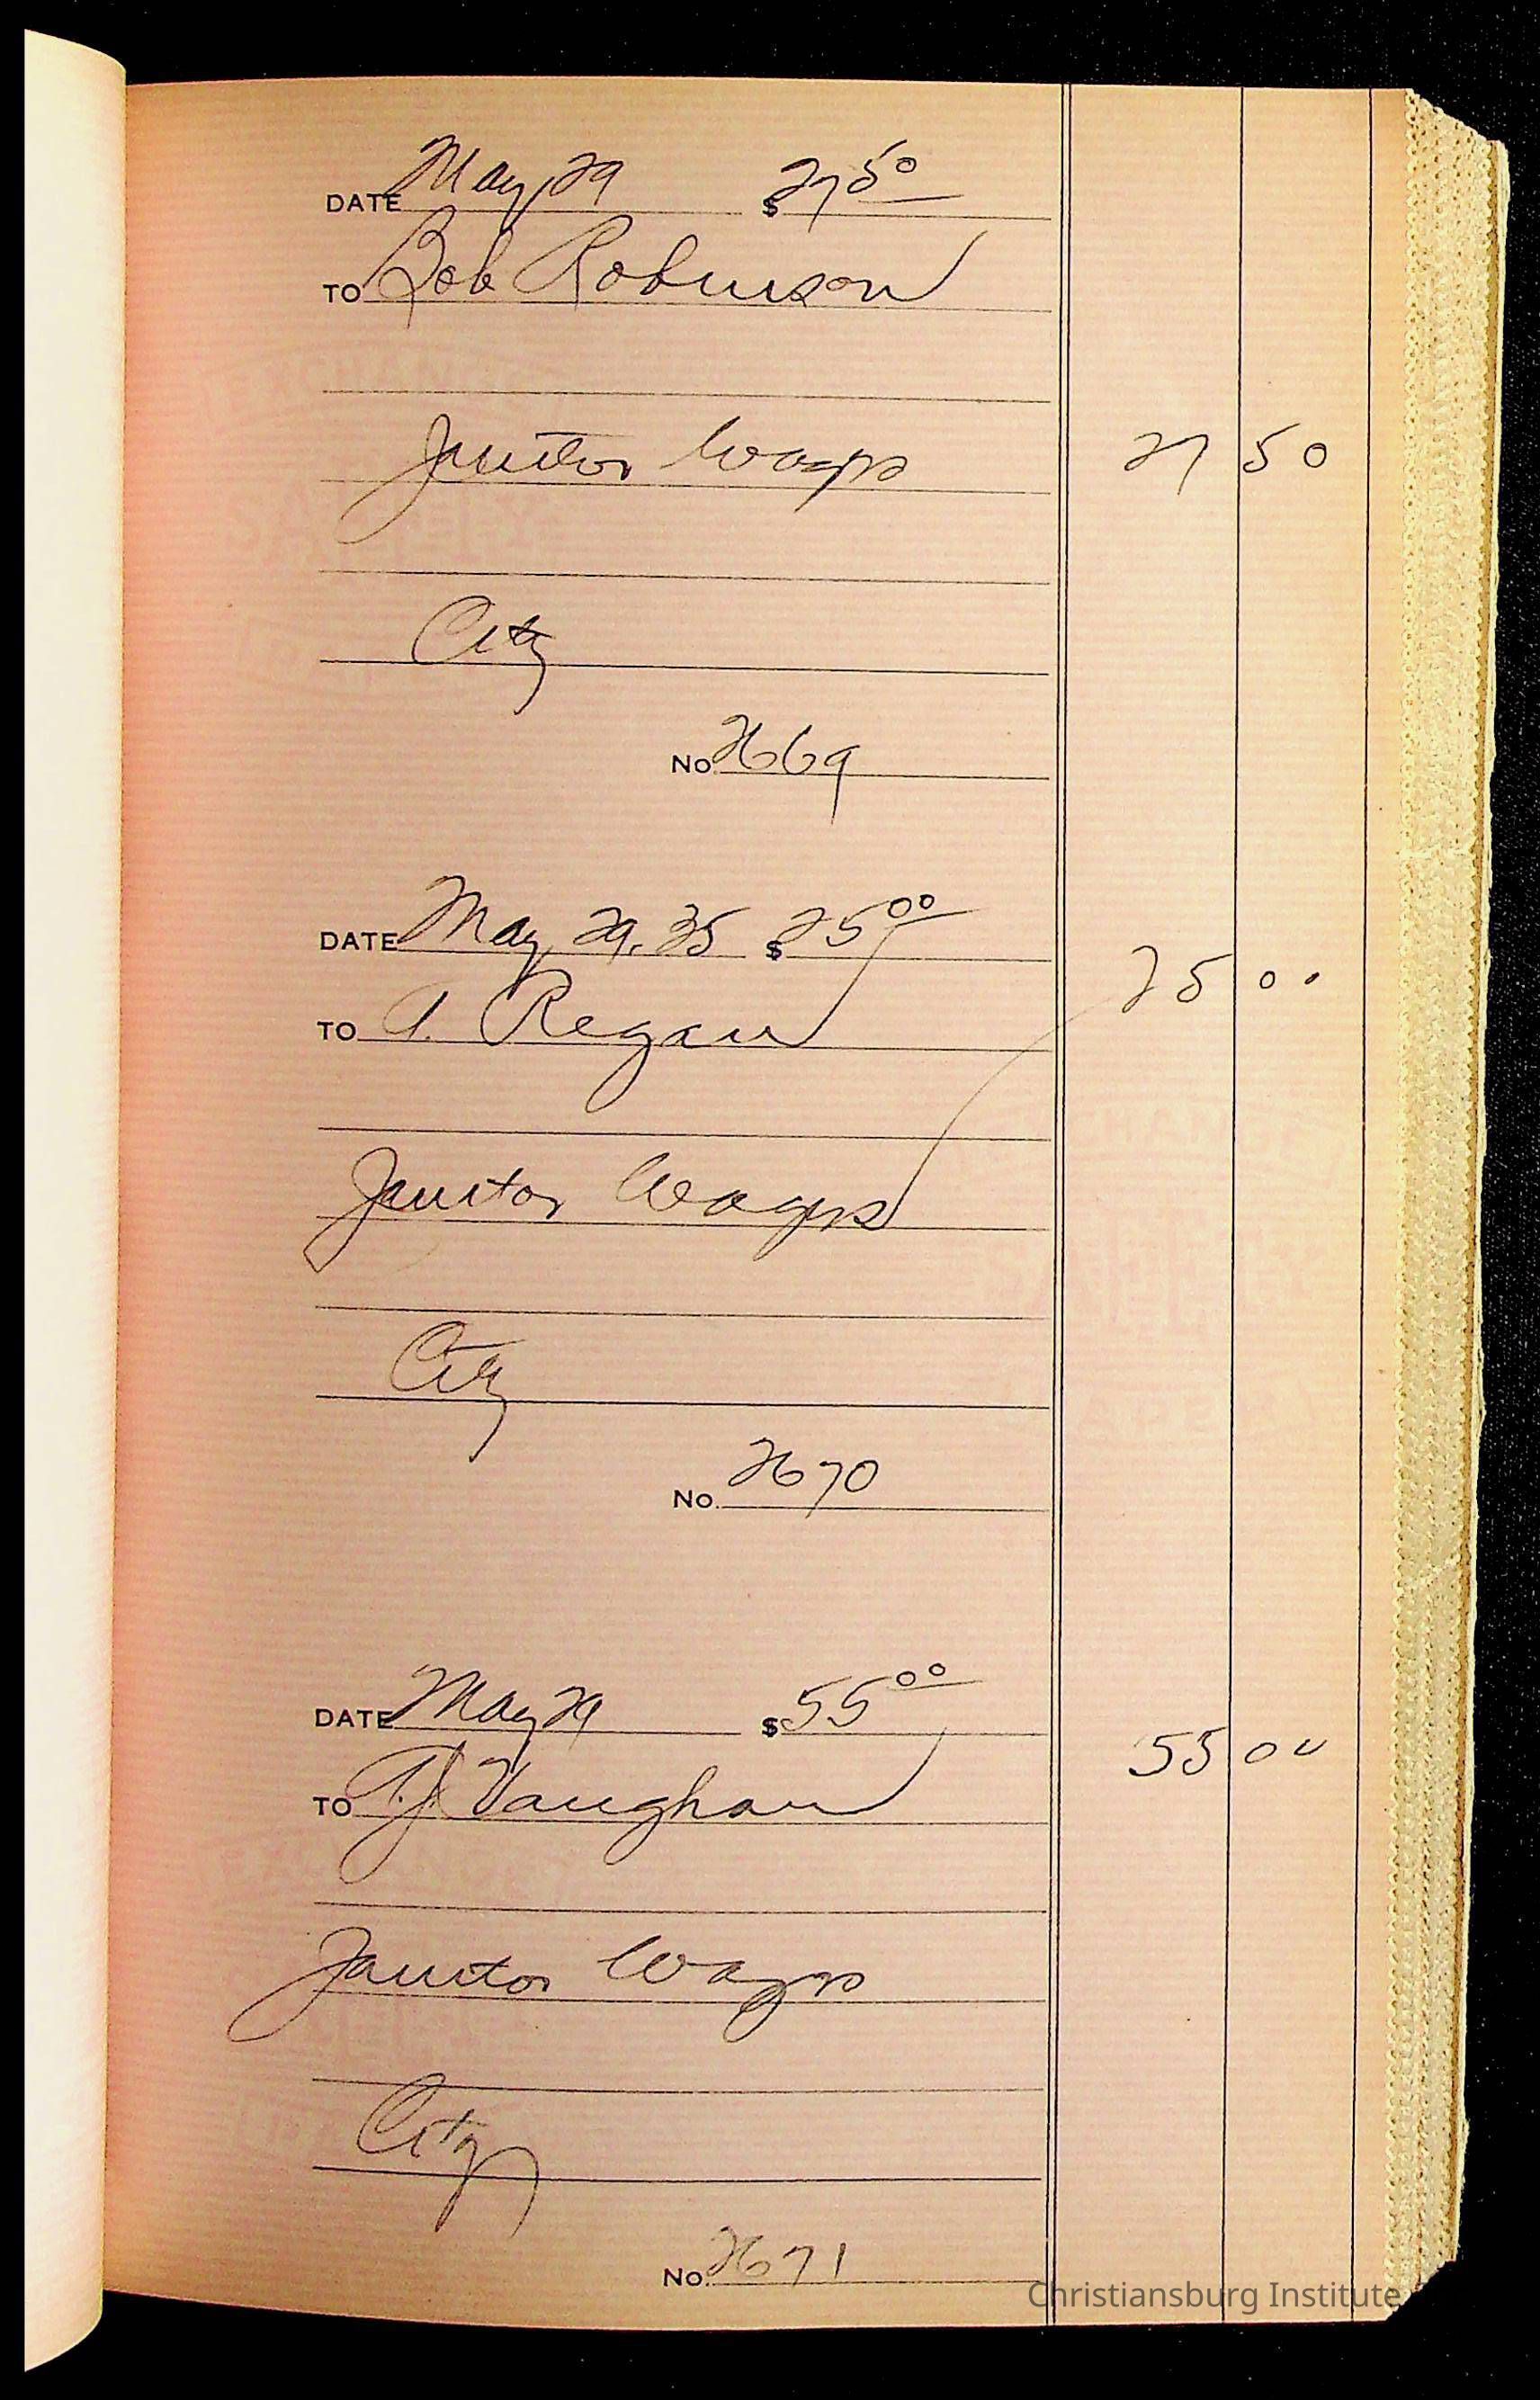 DATE May, 29 $ 27 50
TO Bob Robinson
Janitor Wages 27 50
City
No. 2669
DATE May, 29, 35 $ 25 00
25 00
TO A. Regan
Janitor Wages
City
No. 2670
DATE May 29 $ 55 00
55 00
TO A.J. Vaughan
Janitor Wages
City
No. 2671
Christiansburg Institute